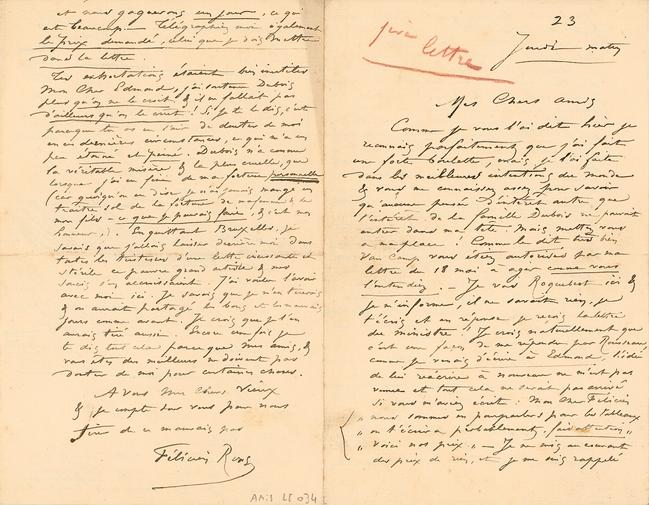 23
1ère lettre
Jeudi matin
Mes Chers amis
Comme je vous l'ai dit hier je
reconnais parfaitement que j'ai fait
une forte boulette, mais je l'ai faite
dans les meilleures intentions du monde
& vous me connaissez assez pour savoir
qu'aucune pensée d'intérêt autre que
l'intérêt de la famille Dubois ne pouvait
entrer dans ma tête. Mais mettez vous
à ma place ! Comme le dit très bien
Van Camp vous étiez autorisés par ma
lettre du 18 mai à agir comme vous
l'entendiez. — Je vois Roquebert ici &
je m'informe, il ne savait rien, je
t'écris et en réponse je reçois la lettre
du ministre ! Je crois naturellement que
c'est une façon de me répondre par Rousseau,
comme je venais d'écrire à Edmond, l'idée
de lui réécrire à nouveau ne m'est pas
venue et tout cela ne serait pas arrivé
si vous m'aviez écrit : Mon Cher Félicien
" nous sommes en pourparlers pour les tableaux
" on t'écrira probablement, fais attention "
" voici nos prix " — Je me mis au courant
des prix de rien, et je me suis rappelé
et nous gagnerons un jour, ce qui
est beaucoup — Télégraphiez moi également
le prix demandé, celui que je dois mettre
dans la lettre.
Tes exhortations étaient bien inutiles
Mon Cher Edmond, j'ai soutenu Dubois
plus qu'on ne le croit & il en fallait pas
d'ailleurs qu'on le crût ! Si je te le dis, c'est
parceque tu as eu l'air de douter de moi
en ces dernières circonstances, ce qui m'a un
peu étonné et peiné. Dubois n'a connu
la véritable misère & la plus cruelle, que
lorsque j'ai eu fini de ma fortune personnelle
(car quoiqu'on en dise je n'ai jamais mangé un
traître sol de la fortune de ma femme & de
mon fils — ce que je pouvais faire, & c'est mon
honneur,). En quittant Bruxelles, je
savais que j'allais laisser derrière moi dans
toutes les tristesses d'une lutte croissante et
stérile ce pauvre grand artiste & mes
soucis s'en accroissaient. J'ai voulu l'avoir
avec moi ici. Je savais que je m'en tirerais
& on aurait partagé les bons et les mauvais
jours comme avant. Je crois que je l'en
aurais tiré aussi. Encore une fois je
te dis tout cela parceque mes amis, &
vous êtes des meilleurs ne doivent pas
douter de moi pour certaines choses.
A vous mes chers vieux
& je compte sur vous pour nous
tirer de ce mauvais pas
Félicien Rops
AMIS LE 034